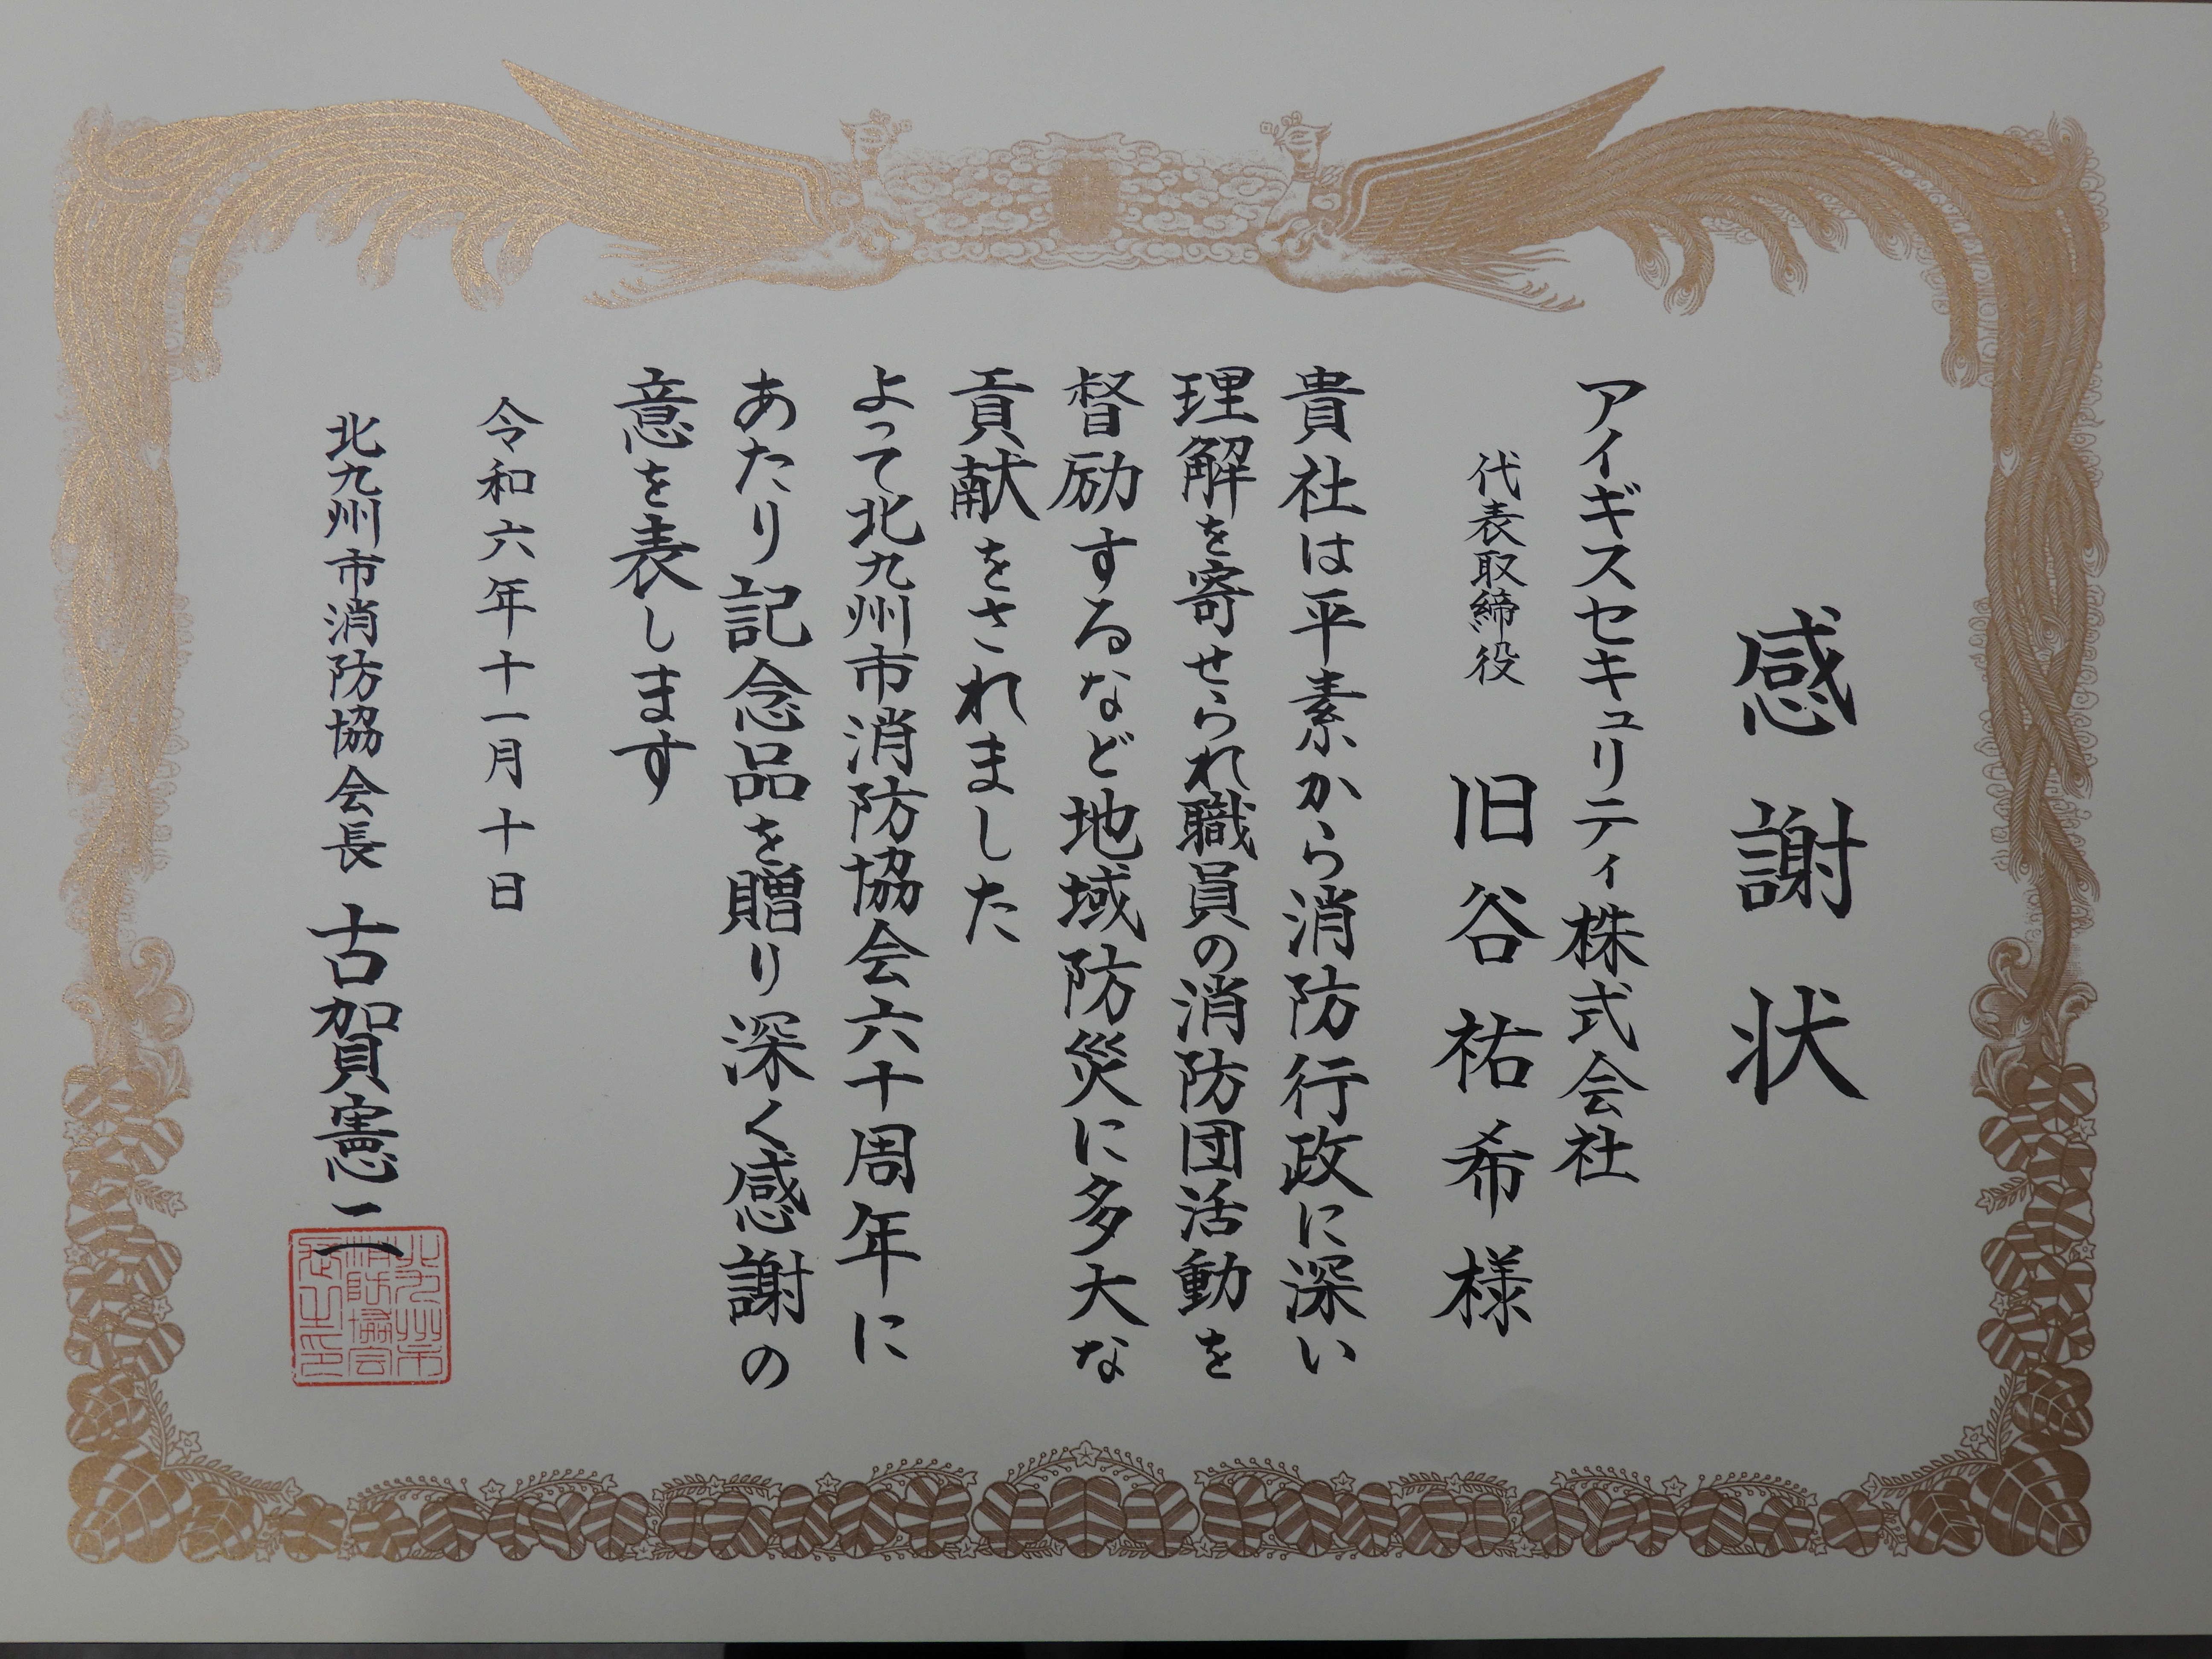 感謝状
アイギスセキュリティ株式会社
代表取締役 旧谷祐希様
貴社は平素から消防行政に深い
理解を寄せられ職員の消防団活動を
督励するなど地域防災に多大な
貢献をされました
よって北九州市消防協会六十周年に
あたり記念品を贈り深く感謝の
意を表します
令和六年十一月十日
北九州市消防協会長 古賀憲二
北九州市
消防協会
長之印